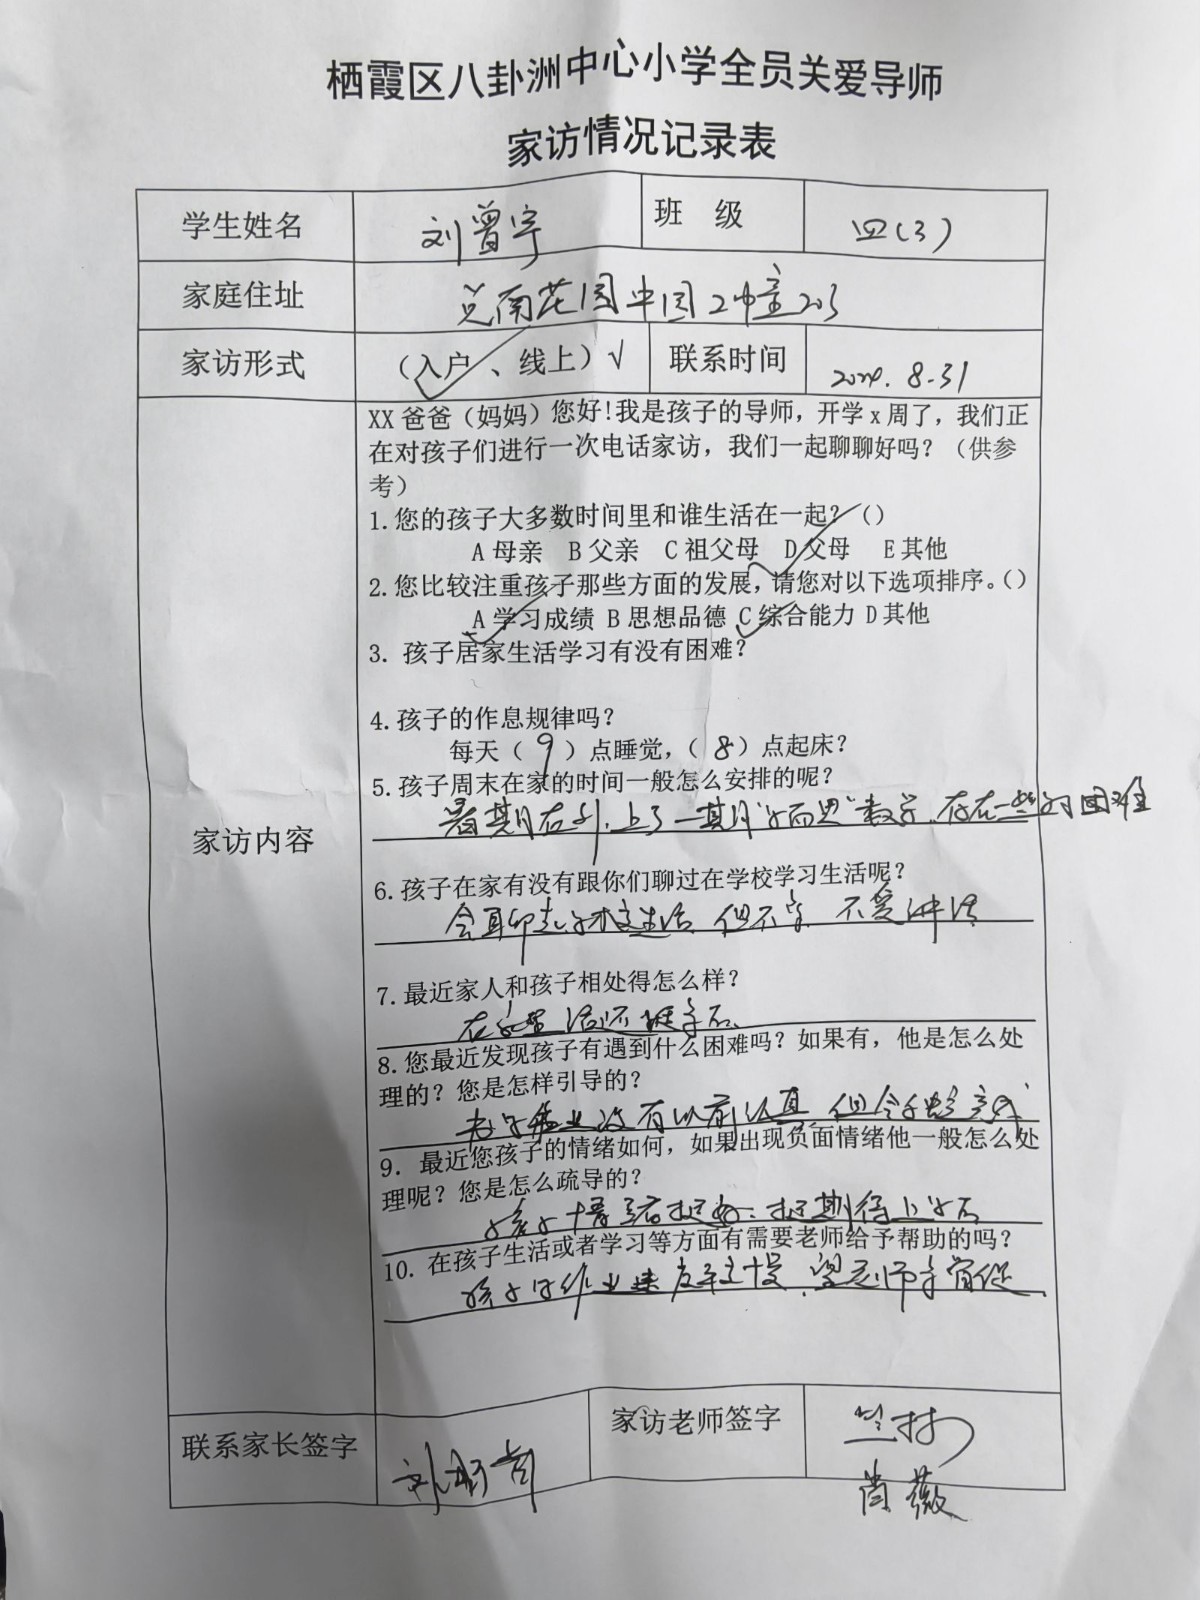 栖霞区八卦洲中心小学全员关爱导师
家访情况记录表
学生姓名 刘曾宇 班 级 四(3)
家庭住址 南花园中园2幢203
家访形式 (入户、线上)√ 联系时间 2024.8.31
XX爸爸(妈妈)您好!我是孩子的导师,开学x周了,我们正
在对孩子们进行一次电话家访,我们一起聊聊好吗?(供参
考)
1.您的孩子大多数时间里和谁生活在一起?()
A母亲 B父亲 C祖父母 D父母 E其他
2.您比较注重孩子那些方面的发展,请您对以下选项排序。()
A学习成绩 B思想品德 C综合能力 D其他
3. 孩子居家生活学习有没有困难?
4.孩子的作息规律吗?
每天(9)点睡觉,(8)点起床?
5.孩子周末在家的时间一般怎么安排的呢?
暑期在 上了一期"学而思"数学,存在一些的困难
家访内容
6.孩子在家有没有跟你们聊过在学校学习生活呢?
会聊起学校生活,但不 不爱讲话
7.最近家人和孩子相处得怎么样?
在家 还
8.您最近发现孩子有遇到什么困难吗?如果有,他是怎么处
理的?您是怎样引导的?
业没有以前认真,但会 完成
9. 最近您孩子的情绪如何,如果出现负面情绪他一般怎么处
理呢?您是怎么疏导的?
孩子情绪挺好,挺期待上学
10.在孩子生活或者学习等方面有需要老师给予帮助的吗?
孩子写作业速度 慢,望老师多督促
联系家长签字 家访老师签字 竺林
肖薇